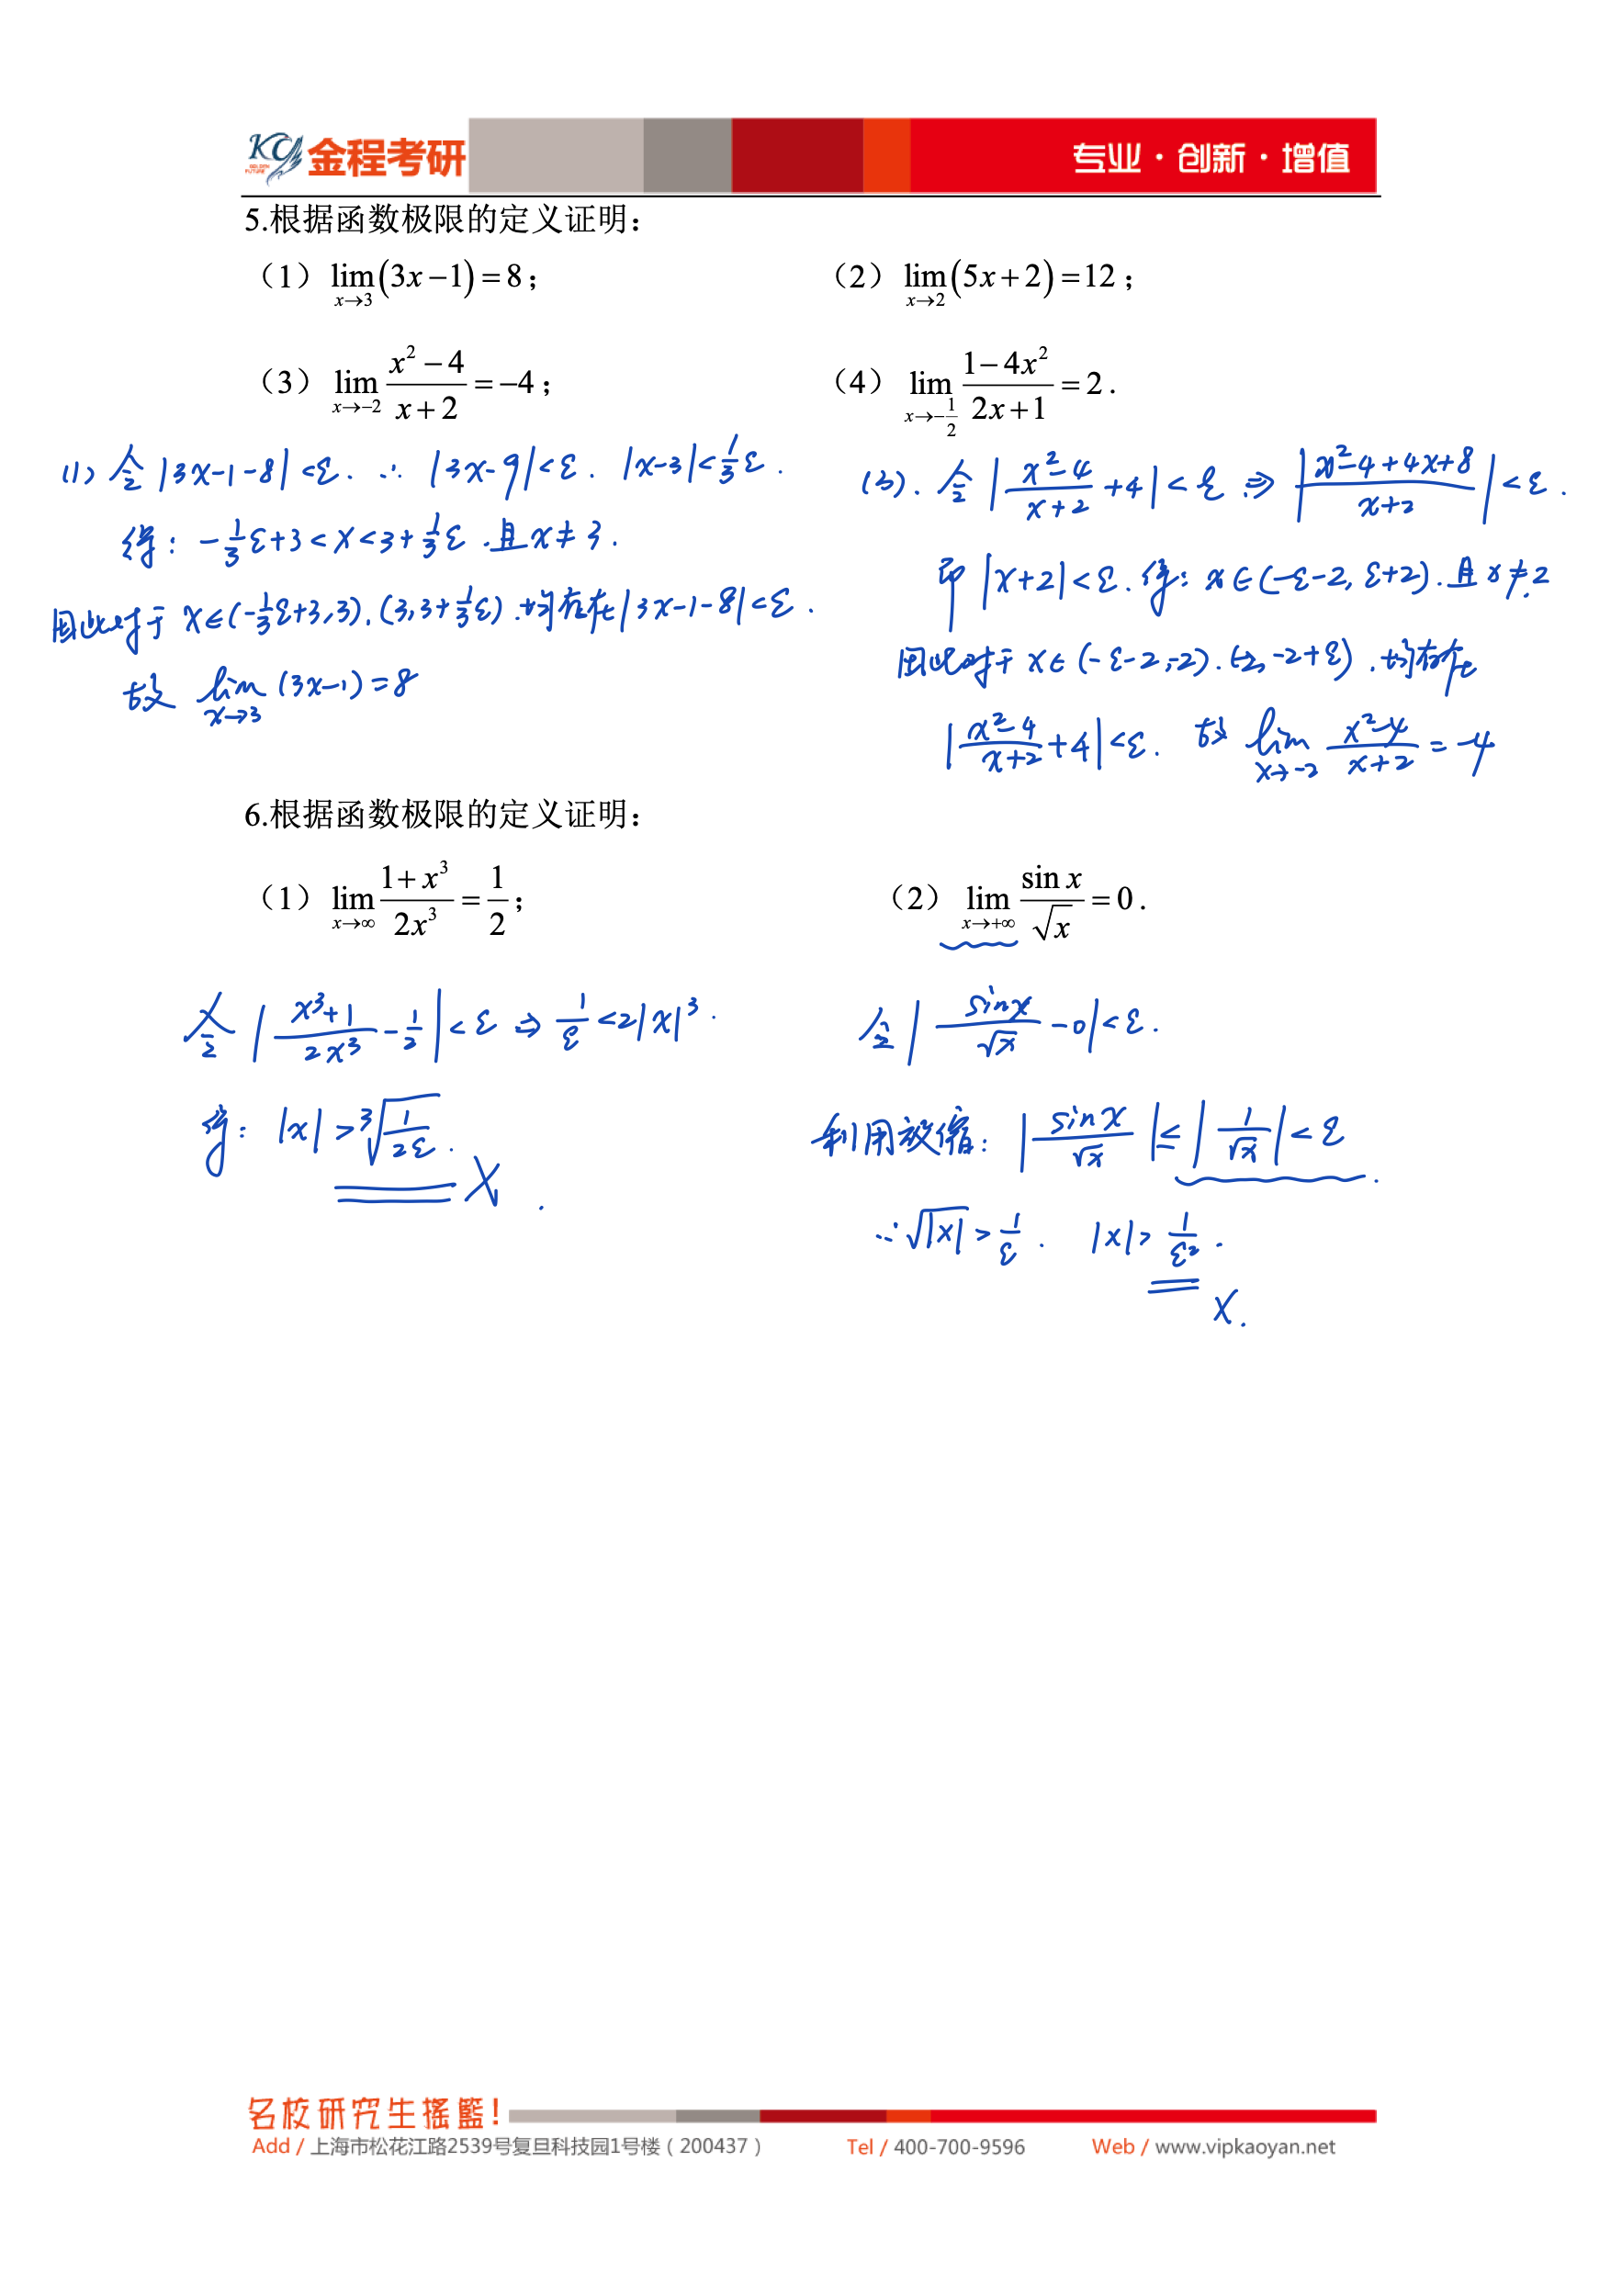 KC GOLDEN FUTURE 金程考研 专业·创新·增值
5.根据函数极限的定义证明：
（1）lim_{x→3}(3x−1)=8；
（2）lim_{x→2}(5x+2)=12；
（3）lim_{x→−2} (x²−4)/(x+2) = −4；
（4）lim_{x→−1/2} (1−4x²)/(2x+1) = 2.
(1) 令 |3x-1-8|<ε. ∴ |3x-9|<ε. |x-3|<1/3 ε.
得: -1/3 ε+3<x<3+1/3 ε. 且 x≠3.
因此对于 x∈(-1/3 ε+3,3).(3,3+1/3 ε).均存在|3x-1-8|<ε.
故 lim_{x→3} (3x-1)=8
(3). 令 |(x²-4)/(x+2) +4|<ε ⇒ |(x²-4+4x+8)/(x+2)|<ε.
即 |x+2|<ε. 得: x∈(-ε-2, ε+2). 且 x≠2.
因此对于 x∈(-ε-2,-2).(-2,-2+ε).均存在
|(x²-4)/(x+2) +4|<ε. 故 lim_{x→-2} (x²-4)/(x+2) = -4
6.根据函数极限的定义证明：
（1）lim_{x→∞} (1+x³)/(2x³) = 1/2；
（2）lim_{x→+∞} sin x/√x = 0.
令 |(x³+1)/(2x³) - 1/2|<ε ⇒ 1/ε <2|x|³.
得: |x|>³√(1/(2ε)).
X.
令 |sinx/√x -0|<ε.
利用放缩: |sinx/√x|≤|1/√x|<ε.
∴ √|x|>1/ε. |x|>1/ε².
X.
名校研究生摇篮！
Add / 上海市松花江路2539号复旦科技园1号楼（200437） Tel / 400-700-9596 Web / www.vipkaoyan.net